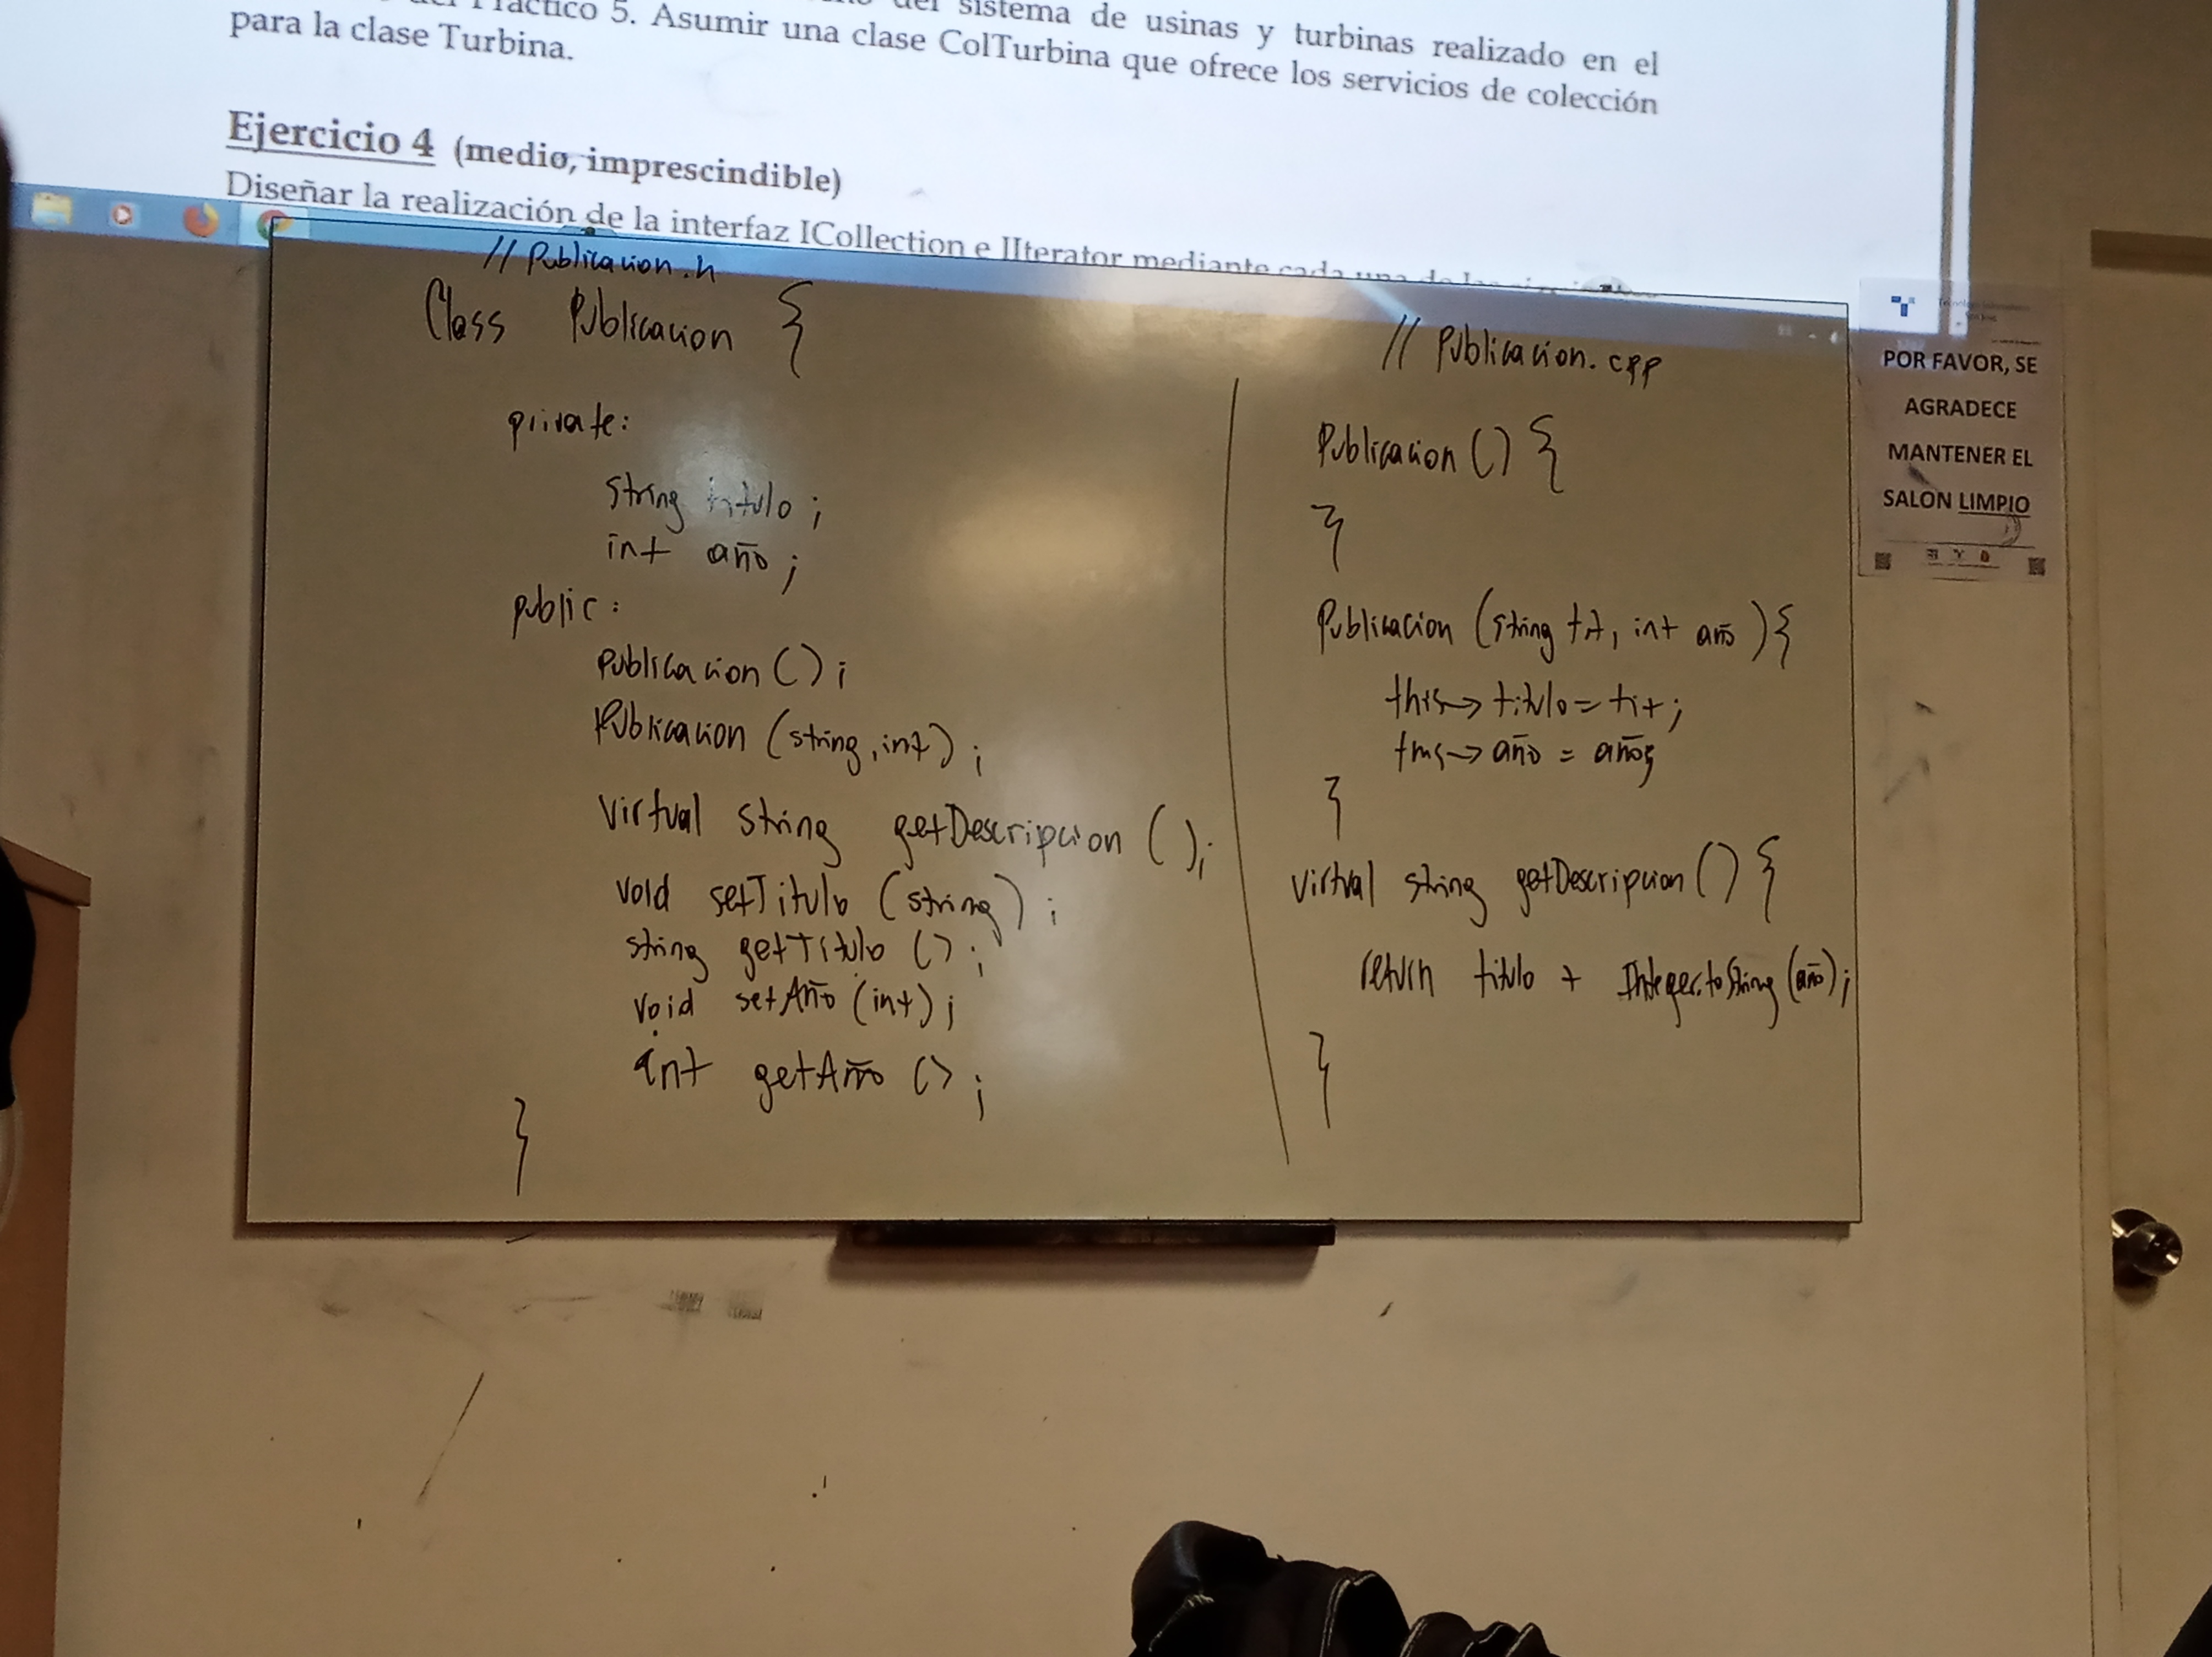 Práctico 5. Asumir una clase ColTurbina que ofrece los servicios de colección
sistema de usinas y turbinas realizado en el
para la clase Turbina.
Ejercicio 4 (medio, imprescindible)
Diseñar la realización de la interfaz ICollection e IIterator mediante cada una de las
// Publicacion.h
Class Publicacion {
private:
string titulo;
int año;
public:
Publicacion();
Publicacion (string, int);
Virtual string getDescripcion ();
void setTitulo (string);
string getTitulo ();
void setAño (int);
int getAño ();
}
// Publicacion.cpp
Publicacion () {
}
Publicacion (string tit, int año) {
this-> titulo = tit;
this-> año = año;
}
Virtual string getDescripcion () {
return titulo + Integer.toString (año);
}
POR FAVOR, SE
AGRADECE
MANTENER EL
SALON LIMPIO